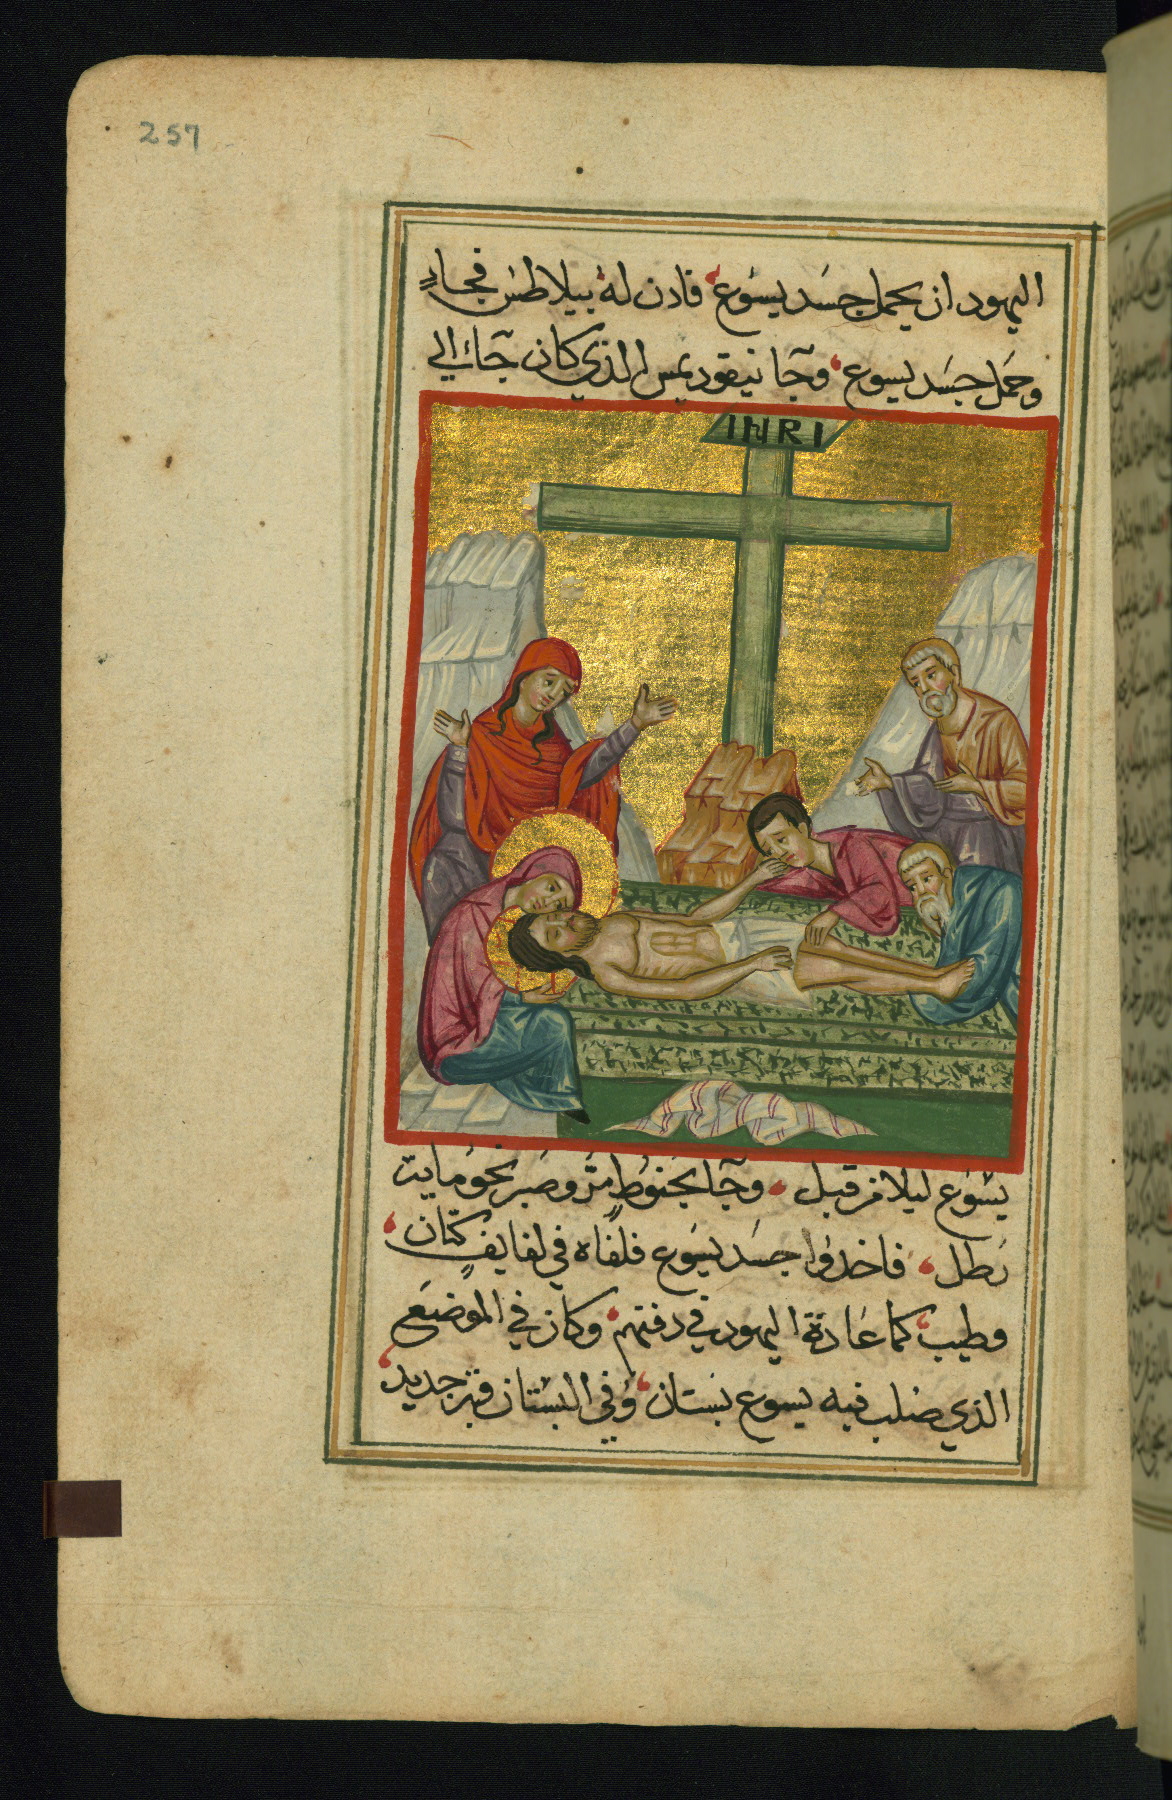 257
اليهود ان يحمل جسد يسوع فادن له بيلاطس فجا
وحمل جسد يسوع وجا نيقوديمس الذي كان جا الي
INRI
يسوع ليلا من قبل وجا بحنوط مر وصبر نحو مايت
رطل فاخدوا جسد يسوع فلفاه في لفايف كتان
وطيب كما عادة اليهود في دفنهم وكان في الموضع
الذي صلب فيه يسوع بستان وفي البستان قبر جديد